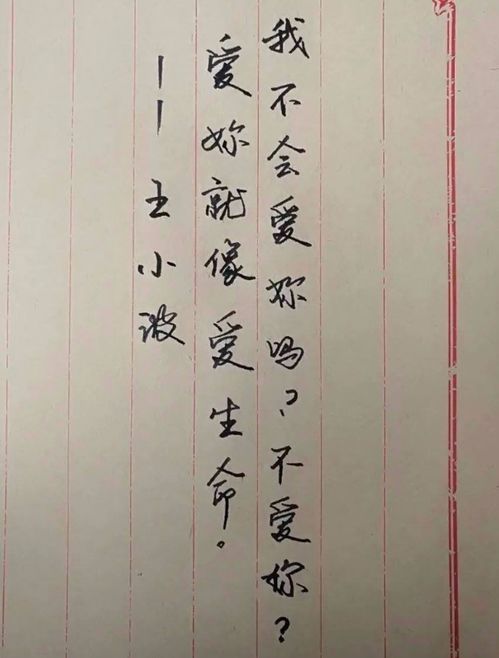 我不会爱妳吗？不爱你？
爱妳就像爱生命。
——王小波